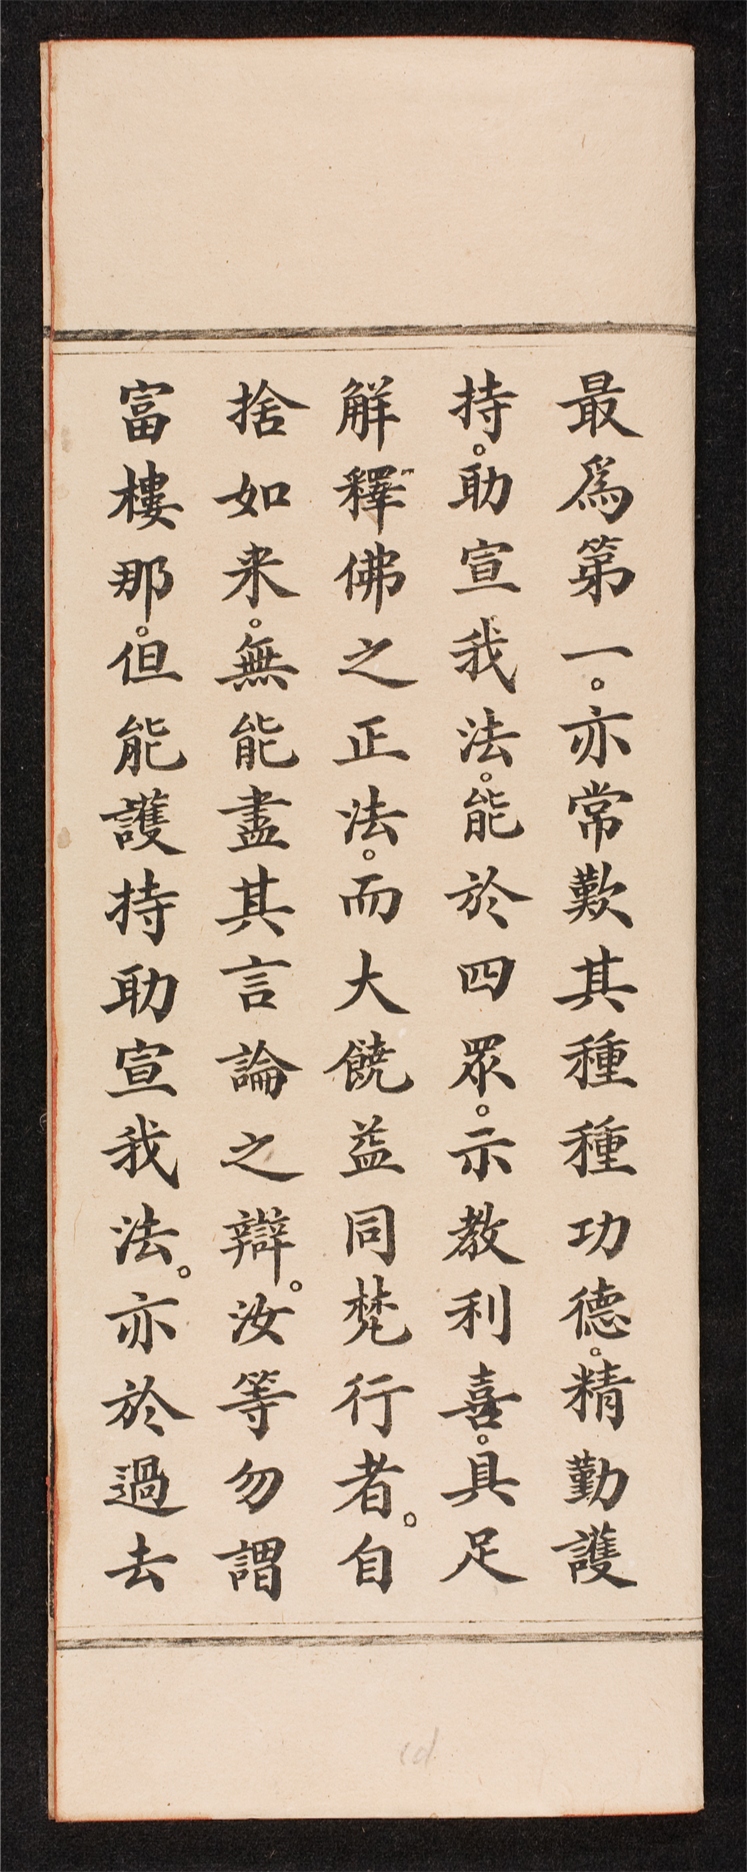 最爲第一。亦常歎其種種功德。精勤護
持。助宣我法。能於四眾。示教利喜。具足
解釋佛之正法。而大饒益同梵行者。自
捨如来。無能盡其言論之辯。汝等勿謂
富樓那。但能護持助宣我法。亦於過去